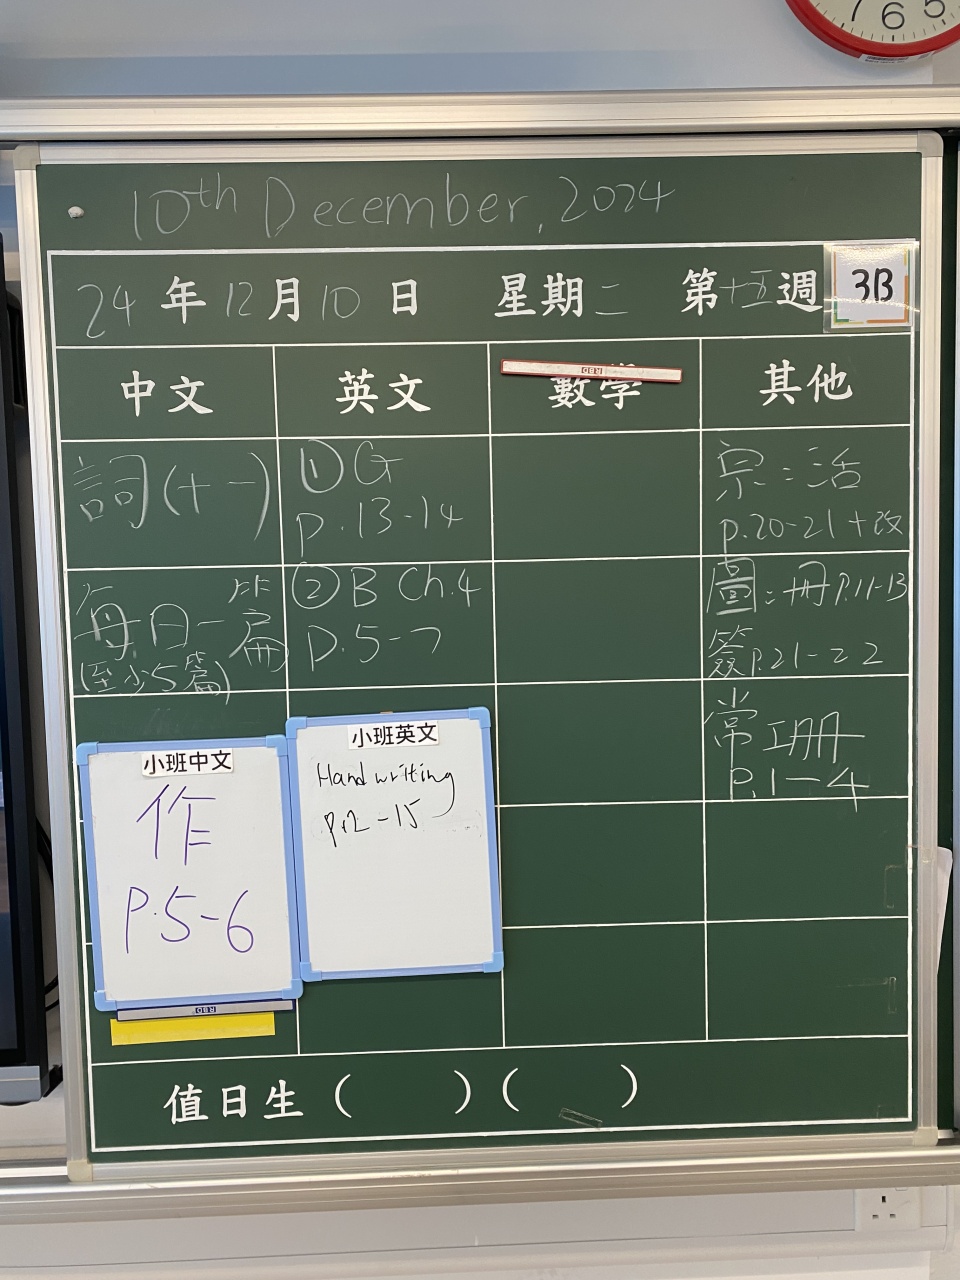 7 6 5
10th December, 2024
24年12月10日 星期二 第十五週 3B
中文 英文 數學 其他
詞(十一)
① G
p.13-14
宗：活
p.20-21+改
每日一篇
(至少5篇)
② B Ch.4
P.5-7
圖：冊P.11-13
簽P.21-22
常珊
P.1-4
小班中文
作
P.5-6
小班英文
Handwriting
P.12-15
RBD
RBD
值日生（ ）（ ）